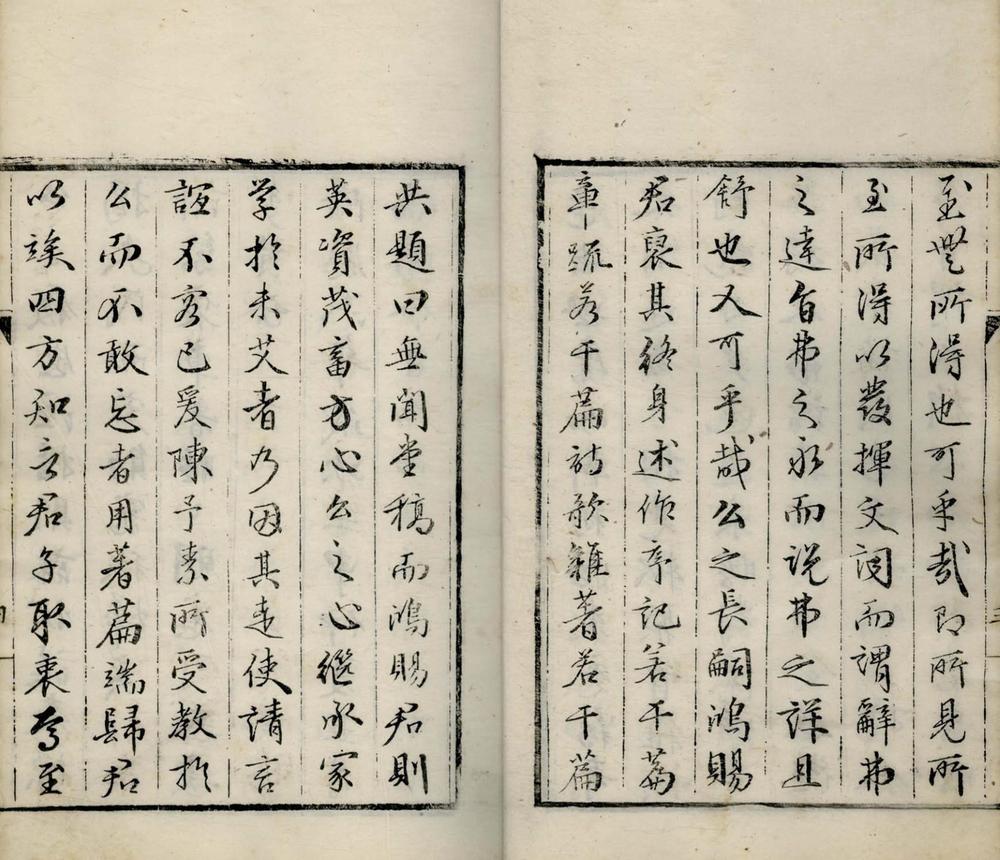 至無所得也可乎哉即所見所
至所得以發揮文詞而謂辭弗
之達旨弗之永而說弗之詳且
舒也又可乎哉公之長嗣鴻賜
君裒其終身述作序記若干篇
章疏若干篇詩歌雜著若干篇
共題曰無聞堂稿而鴻賜君則
英資茂畜方心公之心繼承家
学於未艾者乃因其走使請言
誼不容已爰陳予素所受教於
公而不敢忘者用著篇端歸君
以竢四方知言君子取衷焉至
三